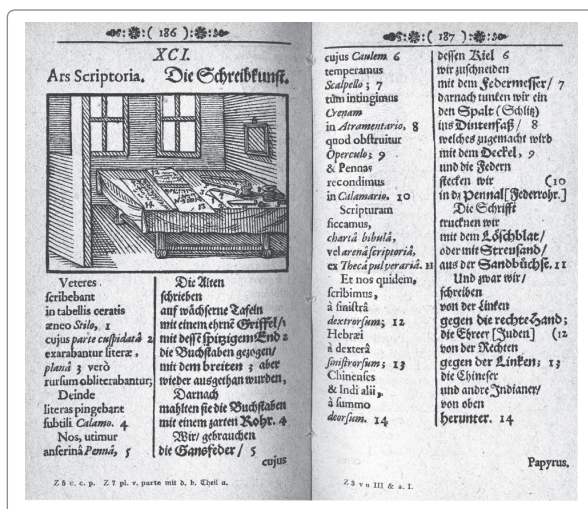 ( 186 )
XCI.
Ars Scriptoria.
Die Schreibkunst.
Veteres
scribebant
in tabellis ceratis
æneo Stilo, 1
cujus parte cuspidatâ 2
exarabantur literæ,
planâ 3 verò
rursum obliterabantur;
Deinde
literas pingebant
subtili Calamo. 4
Nos, utimur
anserinâ Pennâ, 5
Die Alten
schrieben
auf wächserne Tafeln
mit einem ehrnē Griffel/1
mit dessē spitzigem End 2
die Buchstaben gezogen/
mit dem breiten 3 aber
wieder ausgethan wurden,
Darnach
mahlten sie die Buchstaben
mit einem zarten Rohr. 4
Wir/ gebrauchen
die Gansfeder/ 5
cujus
Z 5 c. c. p. Z 7 pl. v. parte mit d. b. Theil a.
( 187 )
cujus Caulem 6
temperamus
Scalpello; 7
tùm intingimus
Crenam
in Atramentario, 8
quod obstruitur
Operculo; 9
& Pennas
recondimus
in Calamario. 10
Scripturam
siccamus,
chartâ bibulâ,
vel arenâ scriptoriâ,
ex Thecâ pulverariâ. 11
Et nos quidem,
scribimus,
à sinistrâ
dextrorsum; 12
Hebræi
à dexterâ
sinistrorsum; 13
Chinenses
& Indi alii,
à summo
deorsum. 14
dessen Kiel 6
wir zuschneiden
mit dem Federmesser/ 7
darnach tunken wir ein
den Spalt (Schlitz)
ins Dintenfaß/ 8
welches zugemacht wird
mit dem Deckel, 9
und die Federn
stecken wir (10
in dz Pennal[Federrohr.]
Die Schrifft
trucknen wir
mit dem Löschblat/
oder mit Streusand/
aus der Sandbüchse. 11
Und zwar wir/
schreiben
von der Linken
gegen die rechte Hand;
die Ebreer [Juden] (12
von der Rechten
gegen der Linken; 13
die Chineser
und andre Indianer/
von oben
herunter. 14
Papyrus.
Z 3 v u III & a. I.